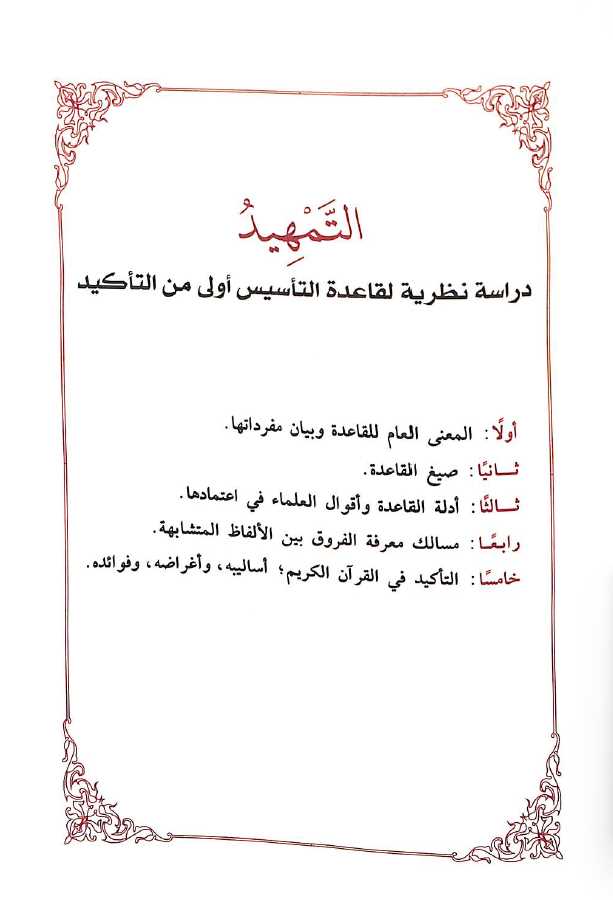 التَّمْهِيدُ
دراسة نظرية لقاعدة التأسيس أولى من التأكيد
أولًا: المعنى العام للقاعدة وبيان مفرداتها.
ثـانيًا: صيغ القاعدة.
ثـالثًا: أدلة القاعدة وأقوال العلماء في اعتمادها.
رابعًـا: مسالك معرفة الفروق بين الألفاظ المتشابهة.
خامسًا: التأكيد في القرآن الكريم؛ أساليبه، وأغراضه، وفوائده.